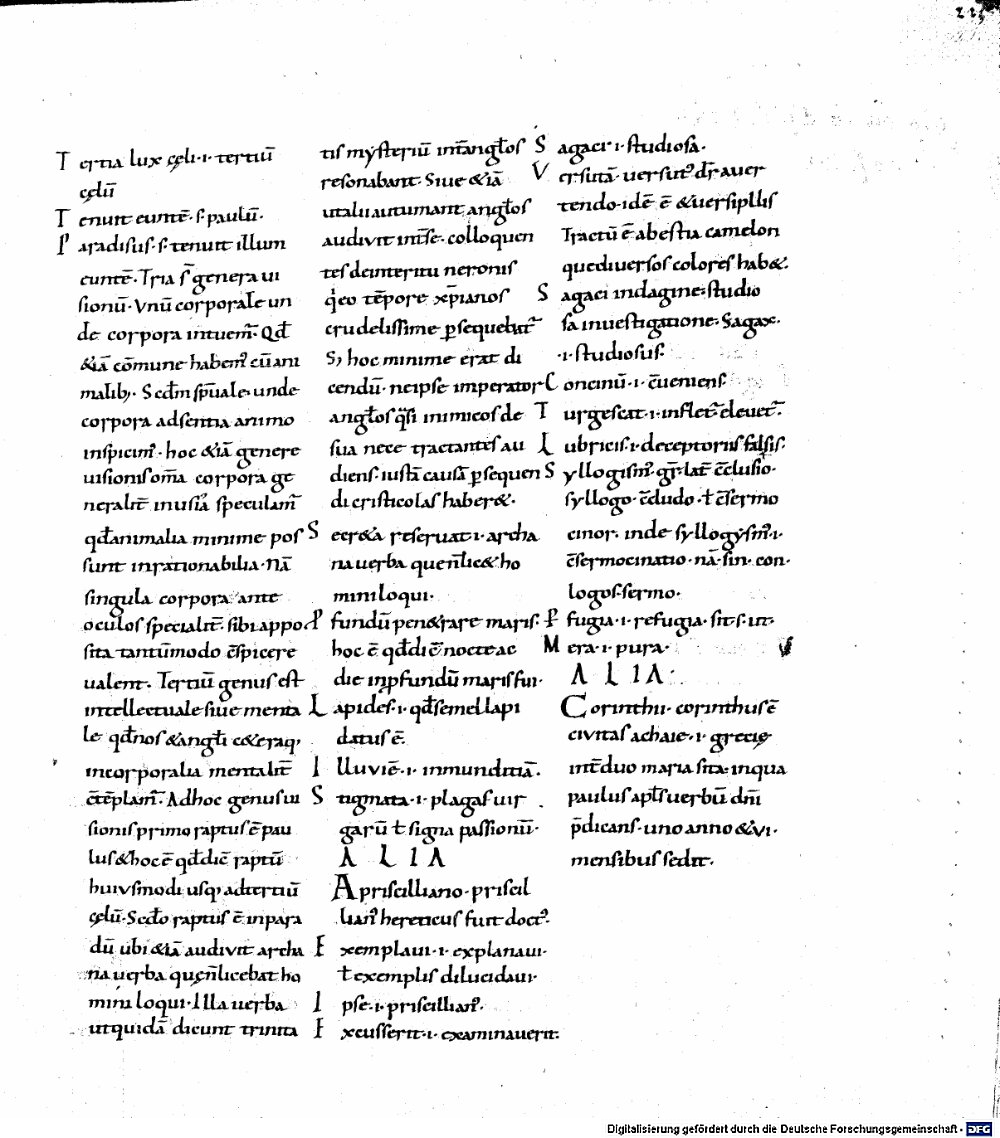 225
Tertia lux cęli ·i· tertiū
cęlū
Tenuit euntē· s· paulū·
Paradisus· s· tenuit illum
euntē· Tria s̄ genera ui
sionū· Vnū corporale un
de corpora intuem̄· Qd̄
&iā cōmune habem᾽ cū ani
malib;· Scdm sp̄uale· unde
corpora absentia animo
inspicim᾽· hoc &iā genere
uisionis om̄a corpora ge
neralit̄ speculam̄
qd̄ animalia minime pos
sunt inrationabilia· Nā
singula corpora ante
oculos specialit̄ sibi appo
sita tantūmodo c̄spicere
ualent· Tertiū genus est
intellectuale siue menta
le qd̄ nos &angl̄i c&eraq;
incorporalia mentalit̄
c̄tēplam̄· Ad hoc genus ui
sionis primo raptus ē pau
lus &hoc ē qd̄ dic̄ raptū
huiusmodi usq; ad tertiū
cęlū· Scd̄o raptus ē in para
dū ubi &iā audivit archa
na uerba quę n̄ licebat ho
mini loqui· Illa uerba
ut quidā dicunt trinita
tis mysteriū int̄ angl̄os
resonabant· Siue &iā
ut alii autumant angl̄os
audivit int̄ se colloquen
tes de interitu neronis
q̇ eo tēpore xp̄ianos
crudelissime p̱sequebat᾽
S; hoc minime erat di
cendū· ne ipse imperator
angl̄os q̄si inimicos de
sua nece tractantes au
diens· iustā causā p̱sequen
di cristicolas haber&·
Secr&a reseruat ·i· archa
na uerba que n̄ lic& ho
mini loqui·
Pfundū pen&rare maris·
hoc ē qd̄ dic̄ nocte ac
die in pfundū maris fui·
Lapides ·i· qd̄ semel lapi
datus ē·
Illuviē ·i· inmunditiā·
Stigmata ·i· plagas uir
garū t̄ signa passionū·
ALIA
A priscilliano· priscil
lian᾽ hereticus fuit doct᾽·
Exemplaui ·i· explanaui·
t̄ exemplis dilucidaui·
Ipse ·i· priscillian᾽·
Excusserit ·i· examinauerit·
Sagaci ·i· studiosa·
Versutā· uersut᾽ dr̄ a uer
tendo· idē ē &uersipllis
Tractū ē a bestia camelon
que diuersos colores hab&·
Sagaci indagine· studio
sa inuestigatione· Sagax·
·i· studiosus·
Concinū ·i· c̄ueniens·
Turgescat ·i· inflet᾽ eleuet᾽·
Lubricis ·i· deceptoriis falsis·
Syllogism᾽· gr̄· lat̄ c̄clusio·
syllogo· c̄cludo· t̄ c̄sermo
cinor· inde syllogysm᾽ ·i·
c̄sermocinatio· nā· sin· con·
logos· sermo·
Pfugia ·i· refugia· sit· s· int·
Mera ·i· pura·
ALIA·
Corinthii· corinthus ē
civitas achaie ·i· grecię
int̄ duo maria sita· in qua
paulus apl̄s uerbū dn̄i
p̄dicans· uno anno &vi·
mensibus sedit·
Digitalisierung gefördert durch die Deutsche Forschungsgemeinschaft - DFG